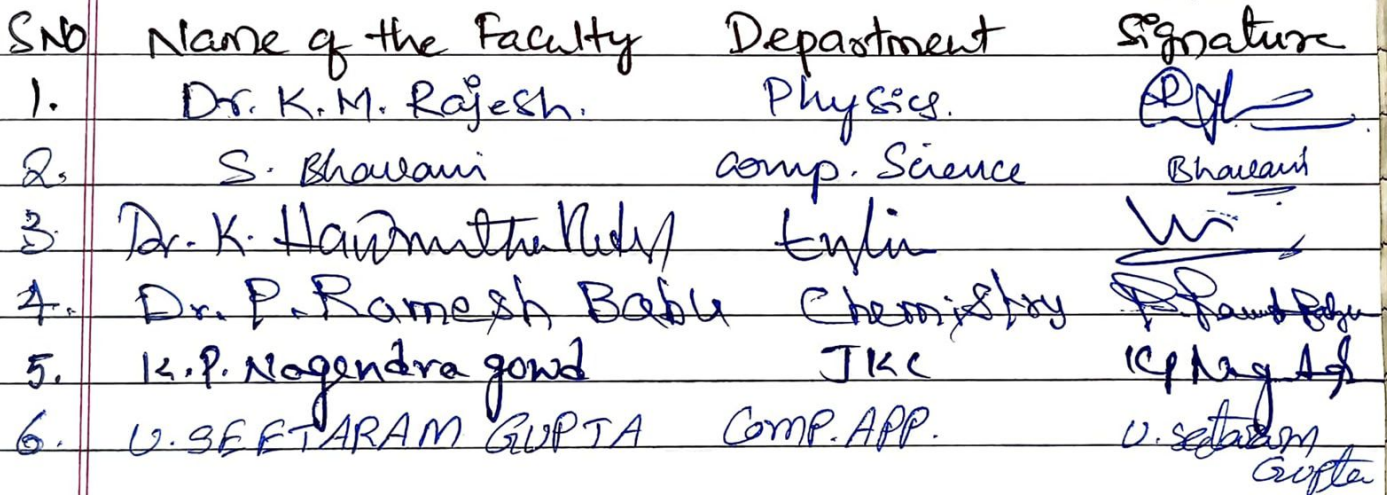 SNO Name of the Faculty Department Signature
1. Dr. K.M. Rajesh. Physics.
2. S. Bhavani Comp. Science Bhavani
3. Dr. K.
4. Dr. P. Ramesh Babu Chemistry
5. K.P. Nagendra gowd JKC
6. U. SEETARAM GUPTA COMP. APP. U. Seetaram
Gupta